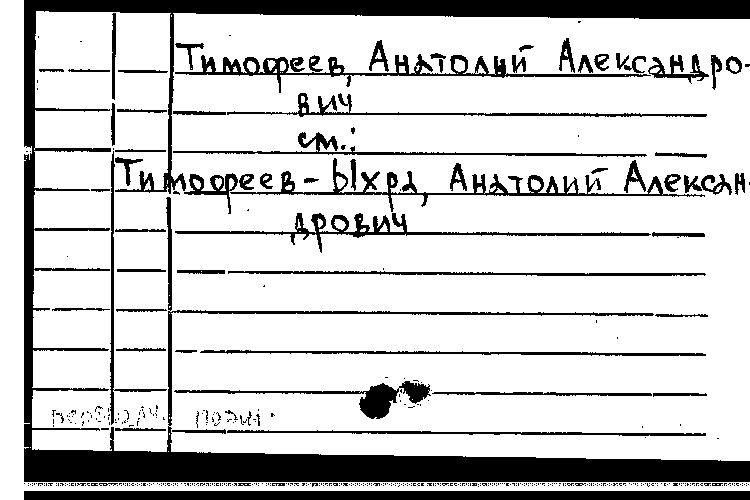 Тимофеев, Анатолий Александро-
вич
см.:
Тимофеев-Ыхра, Анатолий Алексан-
дрович